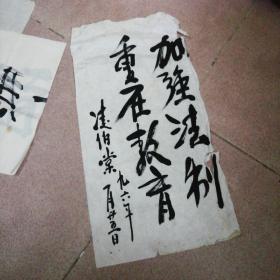 加強法制
重在教育
凌伯棠
九六年
一月廿五日